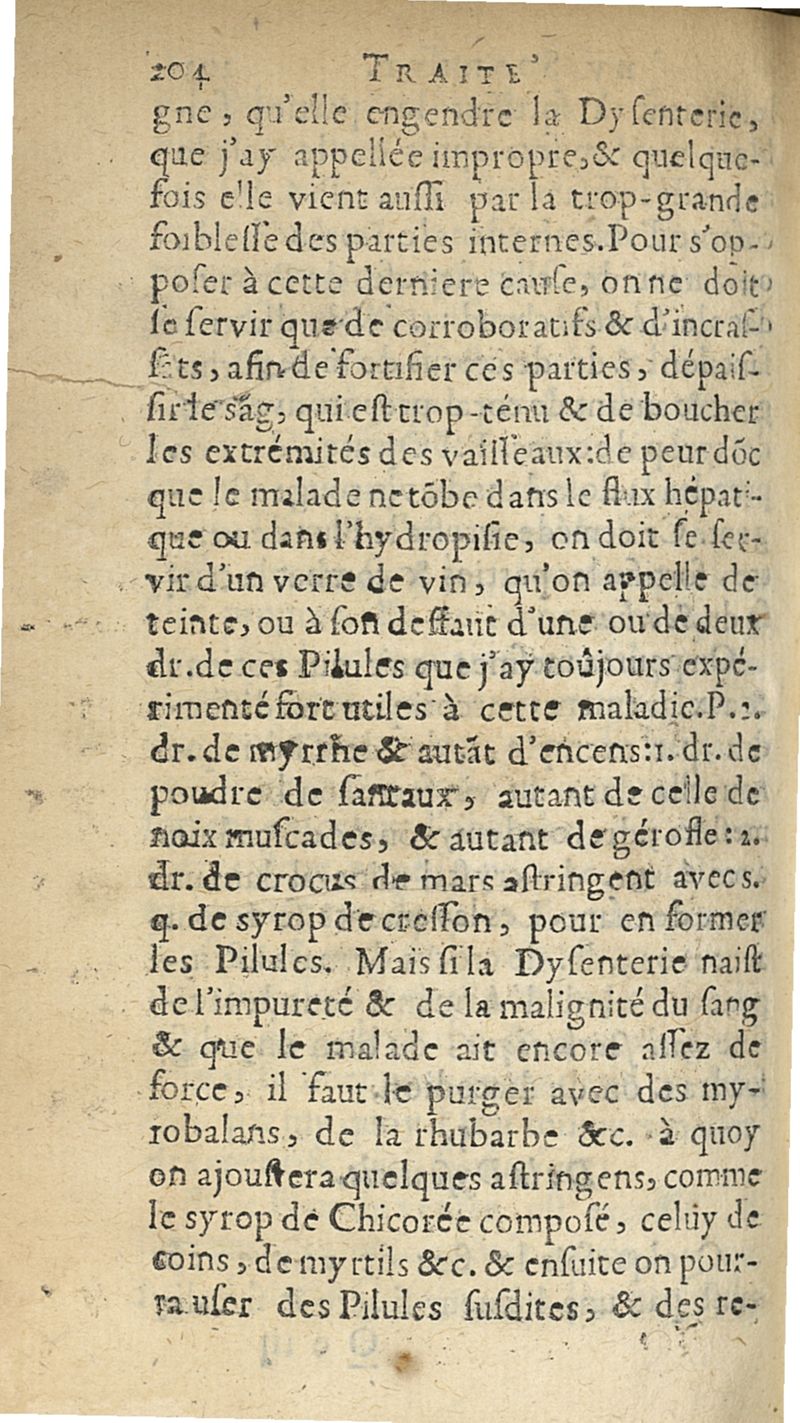 204 TRAITE'
gne, qu'elle engendre la Dyſenterie,
que j'ay appellée impropre, & quelque-
fois elle vient auſſi par la trop-grande
foibleſſe des parties internes. Pour s'op-
poſer à cette derniere cauſe, on ne doit
ſe ſervir que de corroboratifs & d'incraſ-
ſāts, afin de fortifier ces parties, dépaiſ-
ſir le sāg, qui eſt trop-ténu & de boucher
les extrémités des vaiſſeaux: de peur dōc
que le malade ne tōbe dans le flux hépati-
que ou dans l'hydropiſie, on doit ſe ſer-
vir d'un verre de vin, qu'on appelle de
teinte, ou à ſon deffaut d'une ou de deux
dr. de ces Pilules que j'ay toûjours expé-
rimenté fort utiles à cette maladie. P. 2.
dr. de myrrhe & autāt d'encens: 1. dr. de
poudre de ſantaux, autant de celle de
noix muſcades, & autant de gérofle: 2.
dr. de crocus de mars aſtringent avec s.
q. de syrop de creſſon, pour en former
les Pilules. Mais ſi la Dyſenterie naiſt
de l'impureté & de la malignité du ſang
& que le malade ait encore aſſez de
force, il faut le purger avec des my-
robalans, de la rhubarbe &c. à quoy
on ajouſtera quelques aſtringens, comme
le syrop de Chicorée compoſé, celuy de
coins, de myrtils &c. & enſuite on pour-
ra uſer des Pilules ſuſdites, & des re-